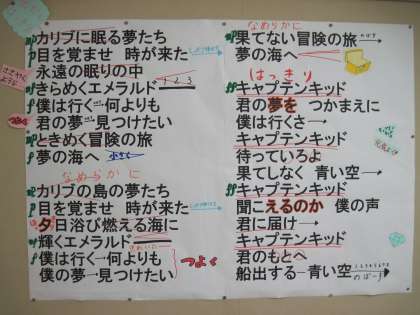 カリブに眠る夢たち
目を覚ませ 時が来た
永遠の眠りの中
きらめくエメラルド
僕は行く 何よりも
君の夢 見つけたい
ときめく冒険の旅
夢の海へ
なめらかに
カリブの島の夢たち
目を覚ませ 時が来た
夕日浴び燃える海に
輝くエメラルド
僕は行く→何よりも
僕の夢→見つけたい
つよく
なめらかに
果てない冒険の旅→
のばす
夢の海へ
はっきり
キャプテンキッド
君の夢を つかまえに
僕は行くさ→
キャプテンキッド
待っていろよ
果てしなく 青い空→
キャプテンキッド
聞こえるのか 僕の声
君に届け→
キャプテンキッド
君のもとへ
船出する―青い空
のばーす